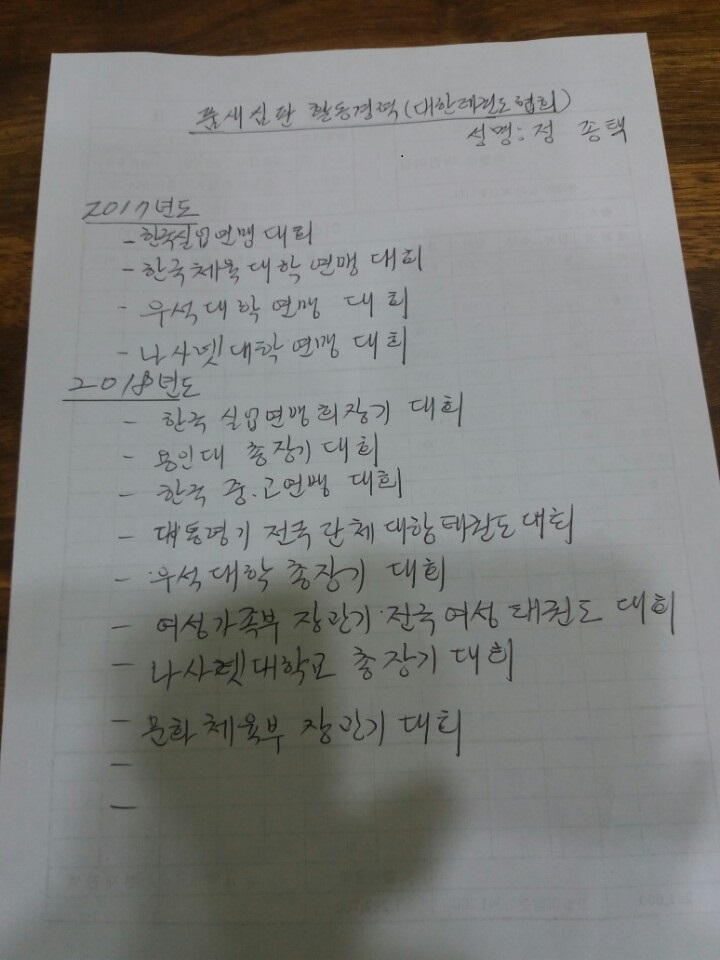 품새심판 활동경력(대한태권도협회)
성명: 정 종택
2017년도
- 한국실업연맹 대회
- 한국체육대학연맹 대회
- 우석대학연맹 대회
- 나사렛대학연맹 대회
2018년도
- 한국 실업연맹회장기 대회
- 용인대 총장기 대회
- 한국 중.고연맹 대회
- 대통령기 전국단체대항태권도대회
- 우석대학 총장기 대회
- 여성가족부 장관기·전국여성태권도 대회
- 나사렛대학교 총장기 대회
- 문화체육부 장관기 대회
-
-